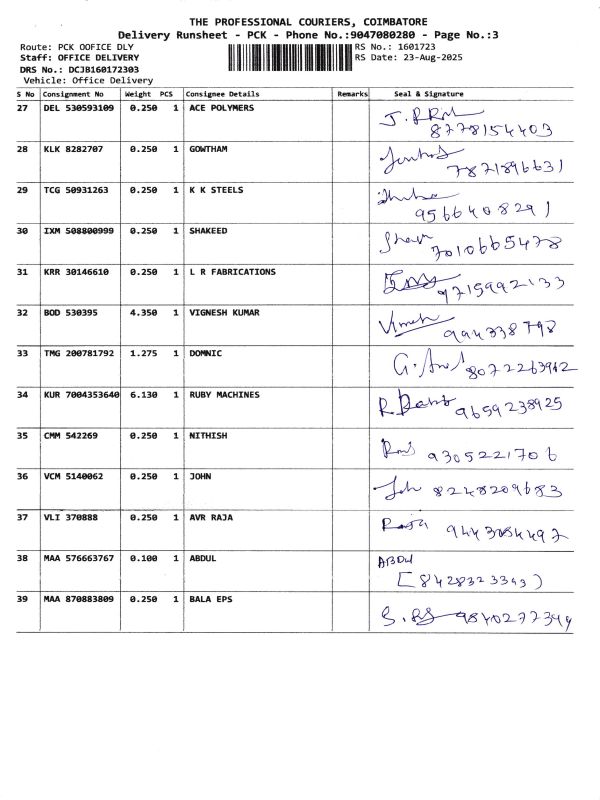 THE PROFESSIONAL COURIERS, COIMBATORE
Delivery Runsheet - PCK - Phone No.:9047080280 - Page No.:3
Route: PCK OOFICE DLY RS No.: 1601723
Staff: OFFICE DELIVERY RS Date: 23-Aug-2025
DRS No.: DCJB160172303
Vehicle: Office Delivery
S No Consignment No Weight PCS Consignee Details Remarks Seal & Signature
27 DEL 530593109 0.250 1 ACE POLYMERS
8778154403
28 KLK 8282707 0.250 1 GOWTHAM
7871896631
29 TCG 50931263 0.250 1 K K STEELS
9566408291
30 IXM 508800999 0.250 1 SHAKEED
7010665478
31 KRR 30146610 0.250 1 L R FABRICATIONS
9715992133
32 BOD 530395 4.350 1 VIGNESH KUMAR
994338798
33 TMG 200781792 1.275 1 DOMNIC
8072263942
34 KUR 7004353640 6.130 1 RUBY MACHINES
9659238925
35 CMM 542269 0.250 1 NITHISH
9305221706
36 VCM 5140062 0.250 1 JOHN
Joh 8248209683
37 VLI 370888 0.250 1 AVR RAJA
Raja 9443084497
38 MAA 576663767 0.100 1 ABDUL
ABDU
[8428323343)
39 MAA 870883809 0.250 1 BALA EPS
9840277344